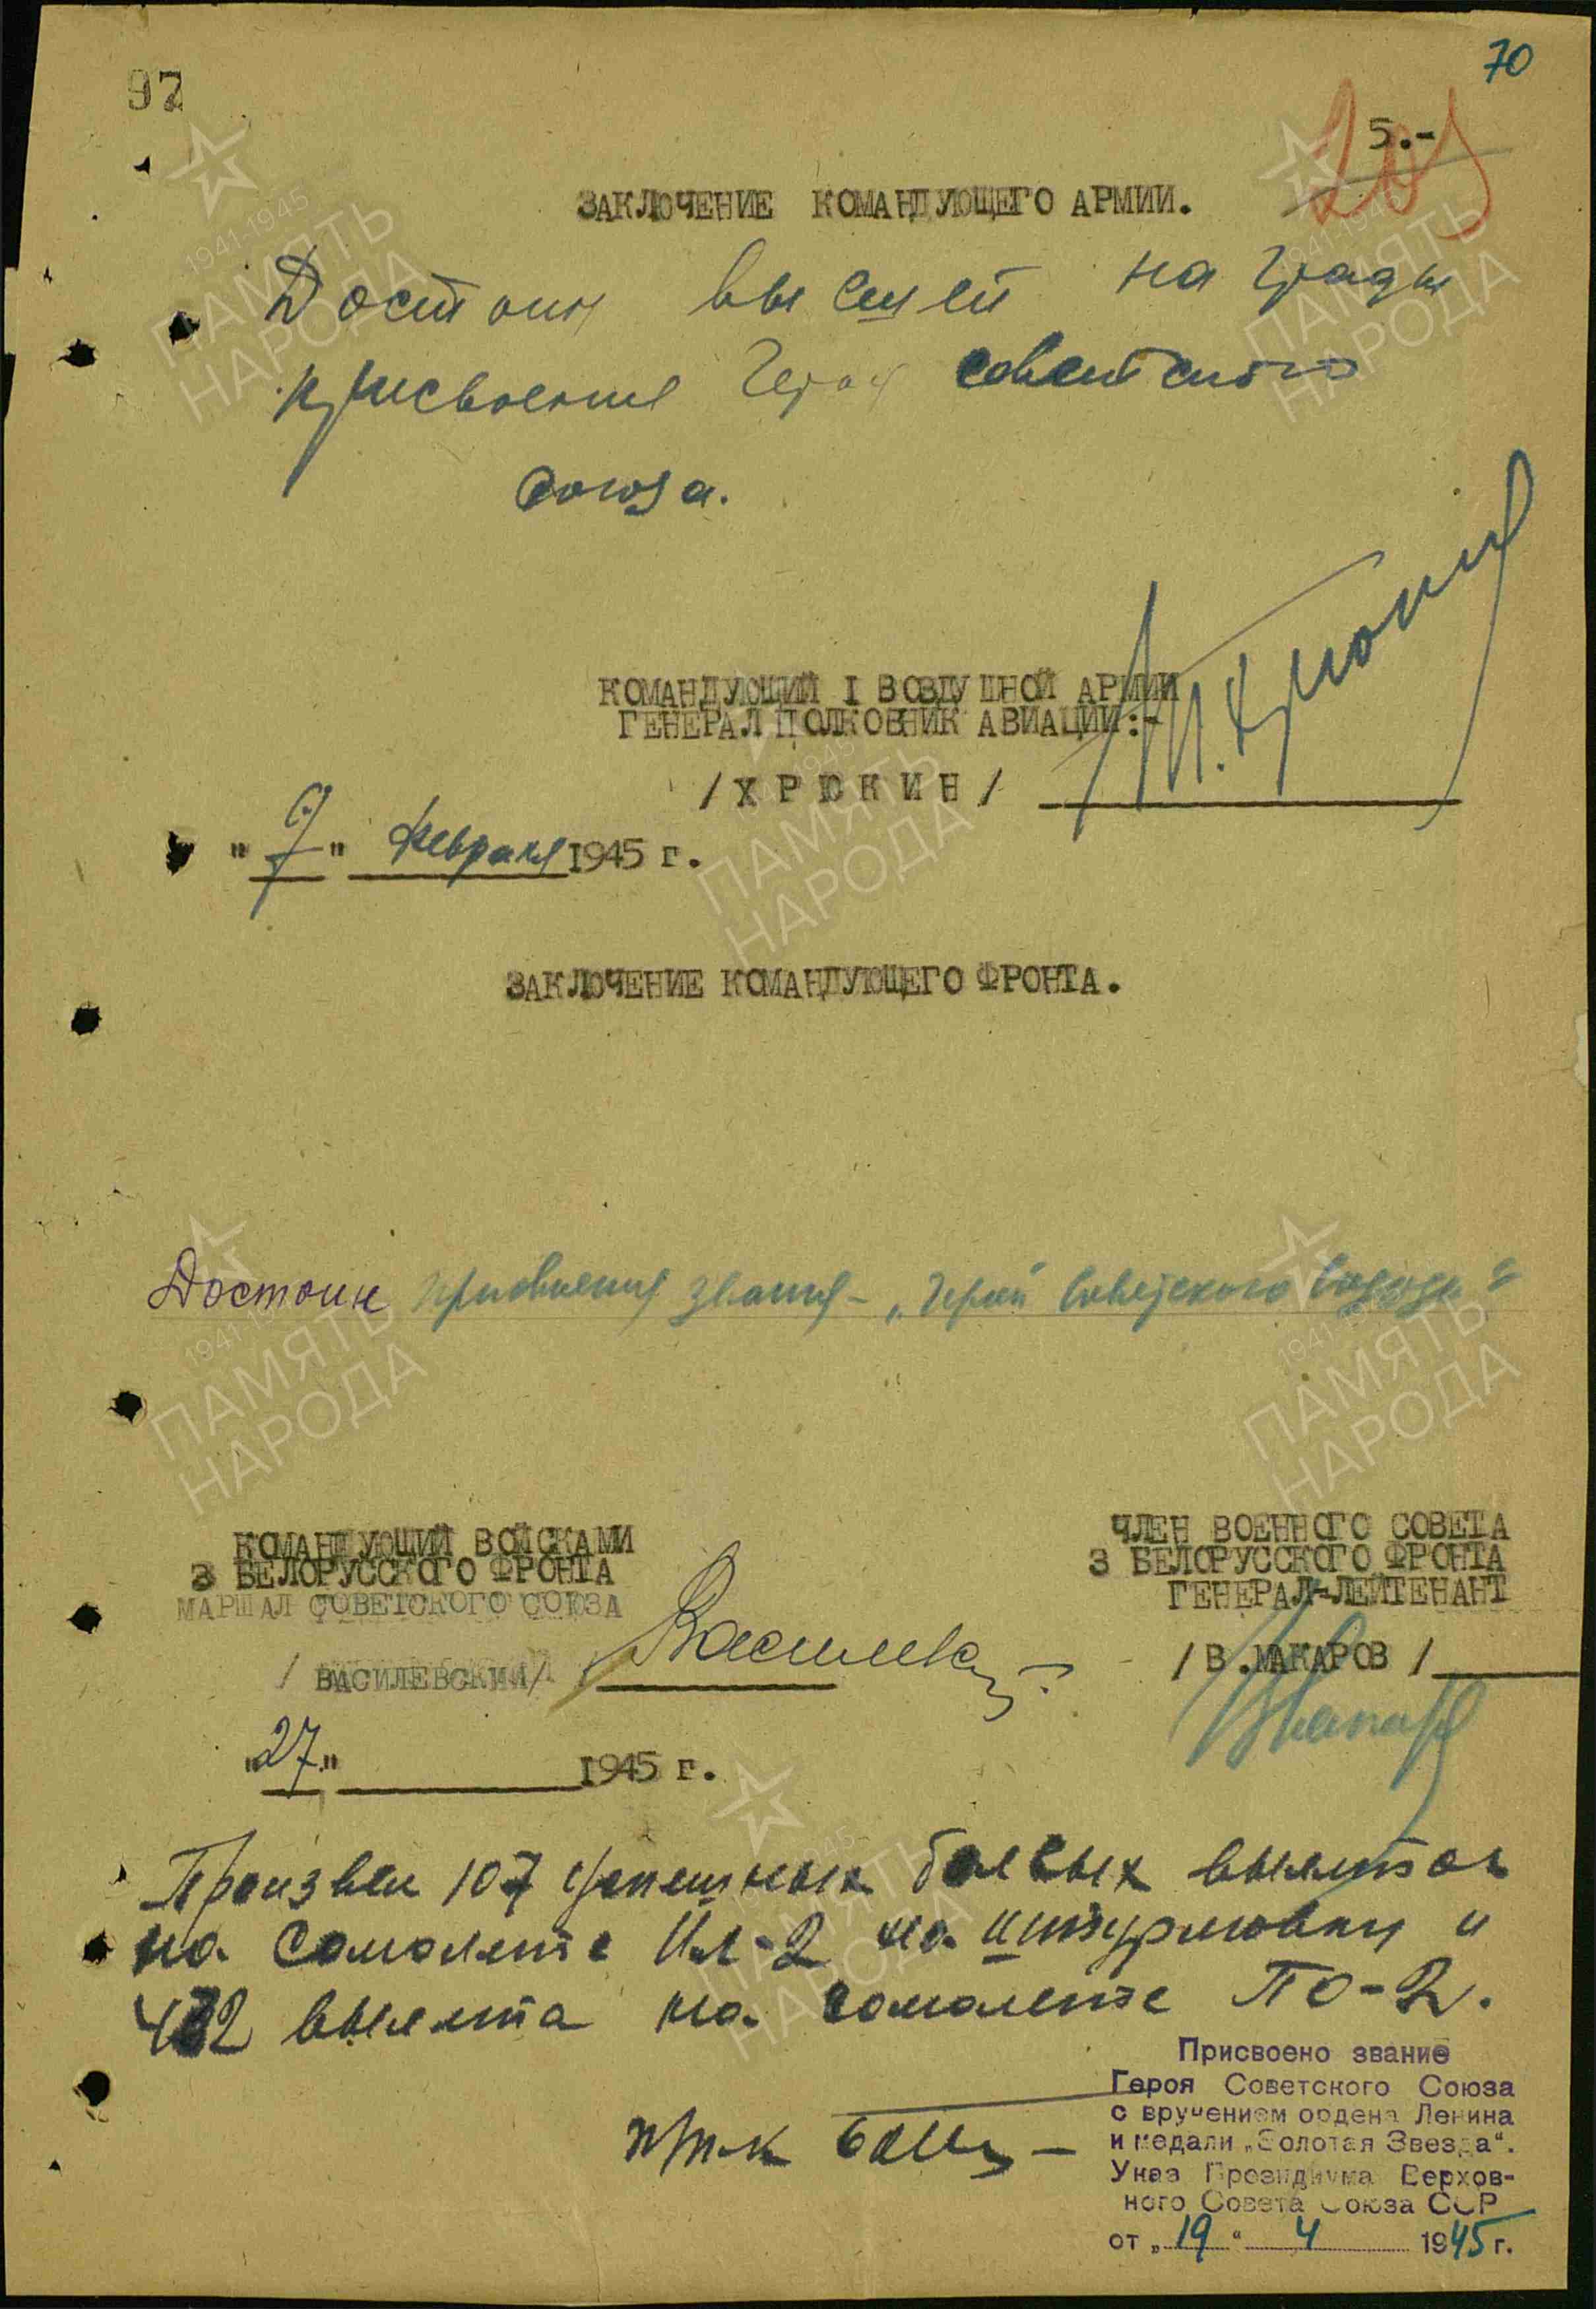 97
70
5.-
205
ЗАКЛЮЧЕНИЕ КОМАНДУЮЩЕГО АРМИИ.
Достоин высшей награды
присвоения Героя советского
союза.
КОМАНДУЮЩИЙ I ВОЗДУШНОЙ АРМИИ
ГЕНЕРАЛ ПОЛКОВНИК АВИАЦИИ:-
/ХРЮКИН/
"9" февраля 1945 г.
ЗАКЛЮЧЕНИЕ КОМАНДУЮЩЕГО ФРОНТА.
Достоин присвоения звания - „Герой Советского Союза"
КОМАНДУЮЩИЙ ВОЙСКАМИ
3 БЕЛОРУССКОГО ФРОНТА
МАРШАЛ СОВЕТСКОГО СОЮЗА
/ВАСИЛЕВСКИЙ/
ЧЛЕН ВОЕННОГО СОВЕТА
3 БЕЛОРУССКОГО ФРОНТА
ГЕНЕРАЛ-ЛЕЙТЕНАНТ
/В.МАКАРОВ/
"27" 1945 г.
Произвел 107 успешных боевых вылетов
на самолете Ил-2 на штурмовку и
432 вылета на самолете ПО-2.
Присвоено звание
Героя Советского Союза
с вручением ордена Ленина
и медали „Золотая Звезда".
Указ Президиума Верхов-
ного Совета Союза ССР
от „19" 4 1945 г.
1941-1945
ПАМЯТЬ
НАРОДА